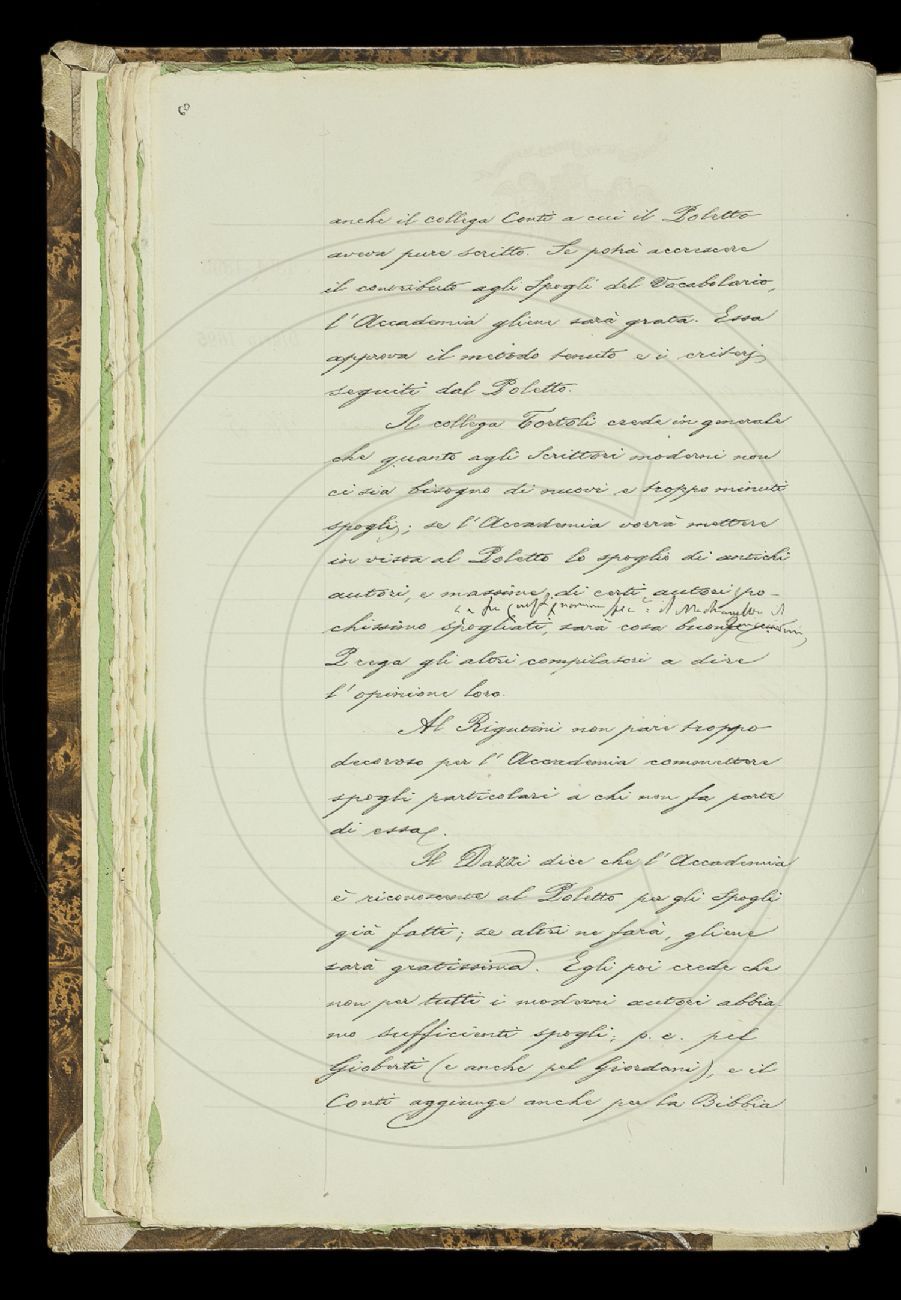 anche il collega Conti a cui il Poletto
aveva pure scritto. Se potrà accrescere
il contributo agli Spogli del Vocabolario,
l'Accademia gliene sarà grata. Essa
approva il metodo tenuto e i criterj
seguiti dal Poletto.
Il collega Tortoli crede in generale
che quanto agli Scrittori moderni non
ci sia bisogno di nuovi e troppo minuti
spogli; se l'Accademia vorrà mettere
in vista al Poletto lo spoglio di antichi
autori, e massime di certi autori po-
chissimo spogliati, sarà cosa buona
Prega gli altri compilatori a dire
l'opinione loro.
Al Rigutini non pare troppo
decoroso per l'Accademia commettere
spogli particolari a chi non fa parte
di essa.
Il Dazzi dice che l'Accademia
è riconoscente al Poletto per gli Spogli
già fatti; se altri ne farà, gliene
sarà gratissima. Egli poi crede che
non per tutti i moderni autori abbia-
mo sufficienti spogli; p. e. pel
Gioberti (e anche pel Giordani), e il
Conti aggiunge anche per la Bibbia